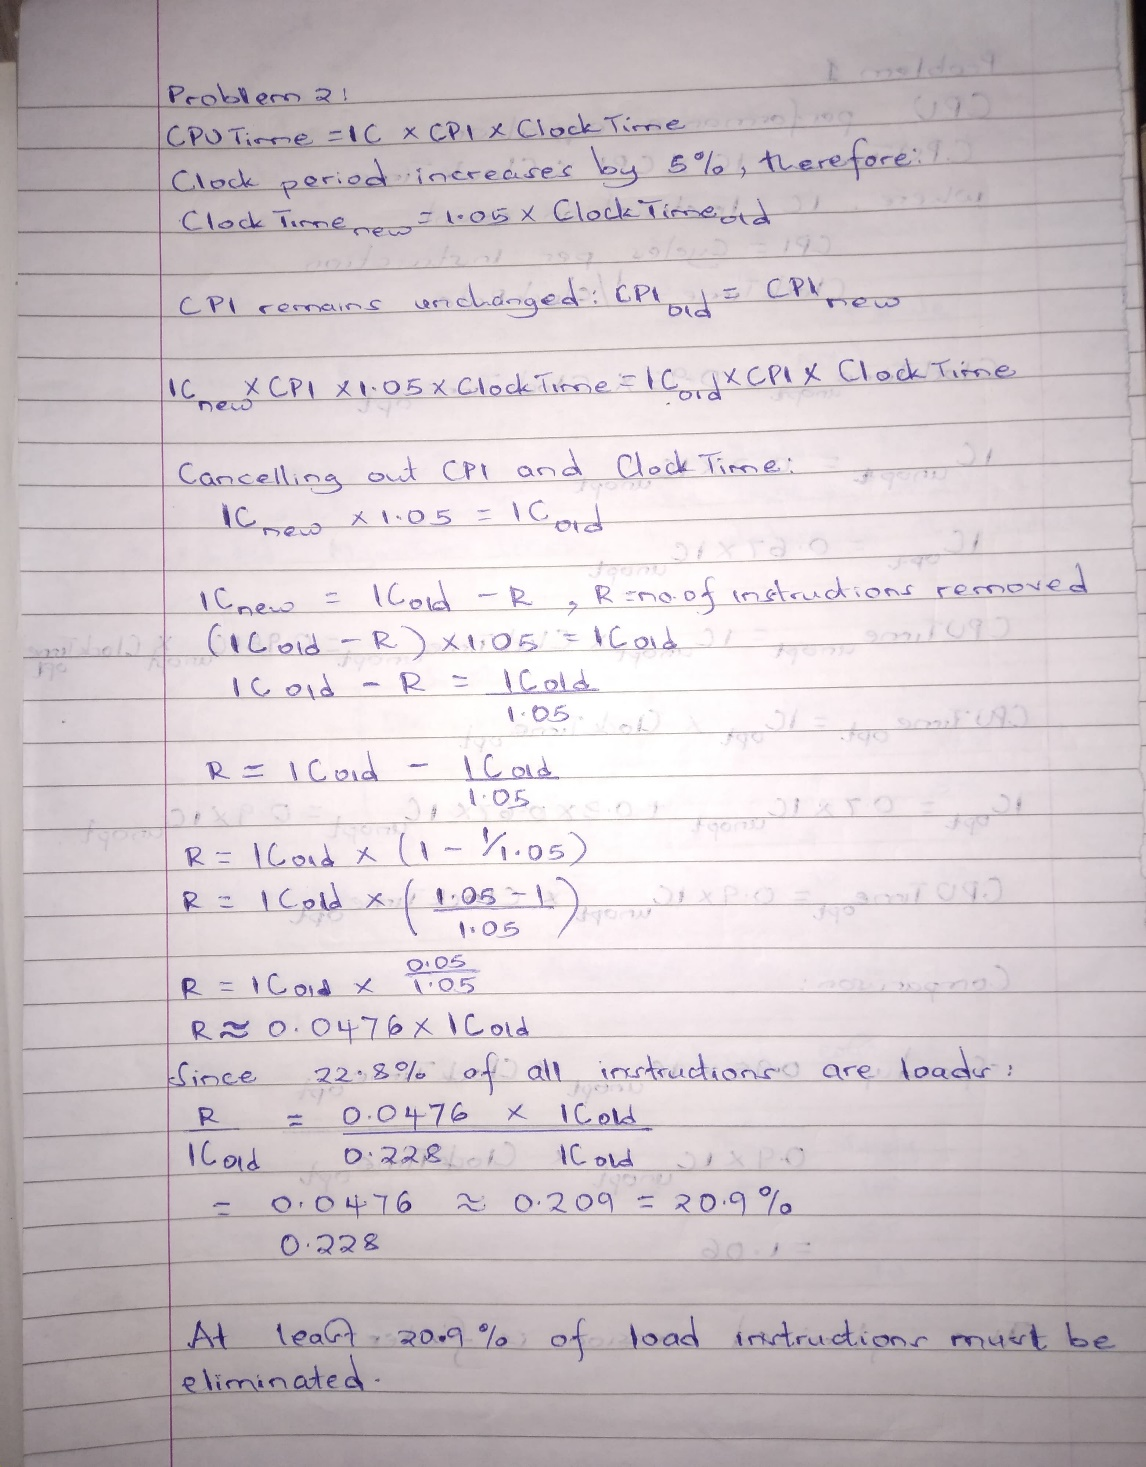 Problem 2:
CPU Time = IC x CPI x Clock Time
Clock period increases by 5%, therefore:
Clock Time new = 1.05 x Clock Time old
CPI remains unchanged: CPI old = CPI new
IC new x CPI x 1.05 x Clock Time = IC old x CPI x Clock Time
Cancelling out CPI and Clock Time:
IC new x 1.05 = IC old
IC new = IC old - R , R = no. of instructions removed
(IC old - R) x 1.05 = IC old
IC old - R = IC old
1.05
R = IC old - IC old
1.05
R = IC old x (1 - 1/1.05)
R = IC old x (1.05 - 1)
1.05
R = IC old x 0.05
1.05
R ≈ 0.0476 x IC old
Since 22.8% of all instructions are loads:
R = 0.0476 x IC old
IC old 0.228 IC old
= 0.0476 ≈ 0.209 = 20.9%
0.228
At least 20.9% of load instructions must be
eliminated.